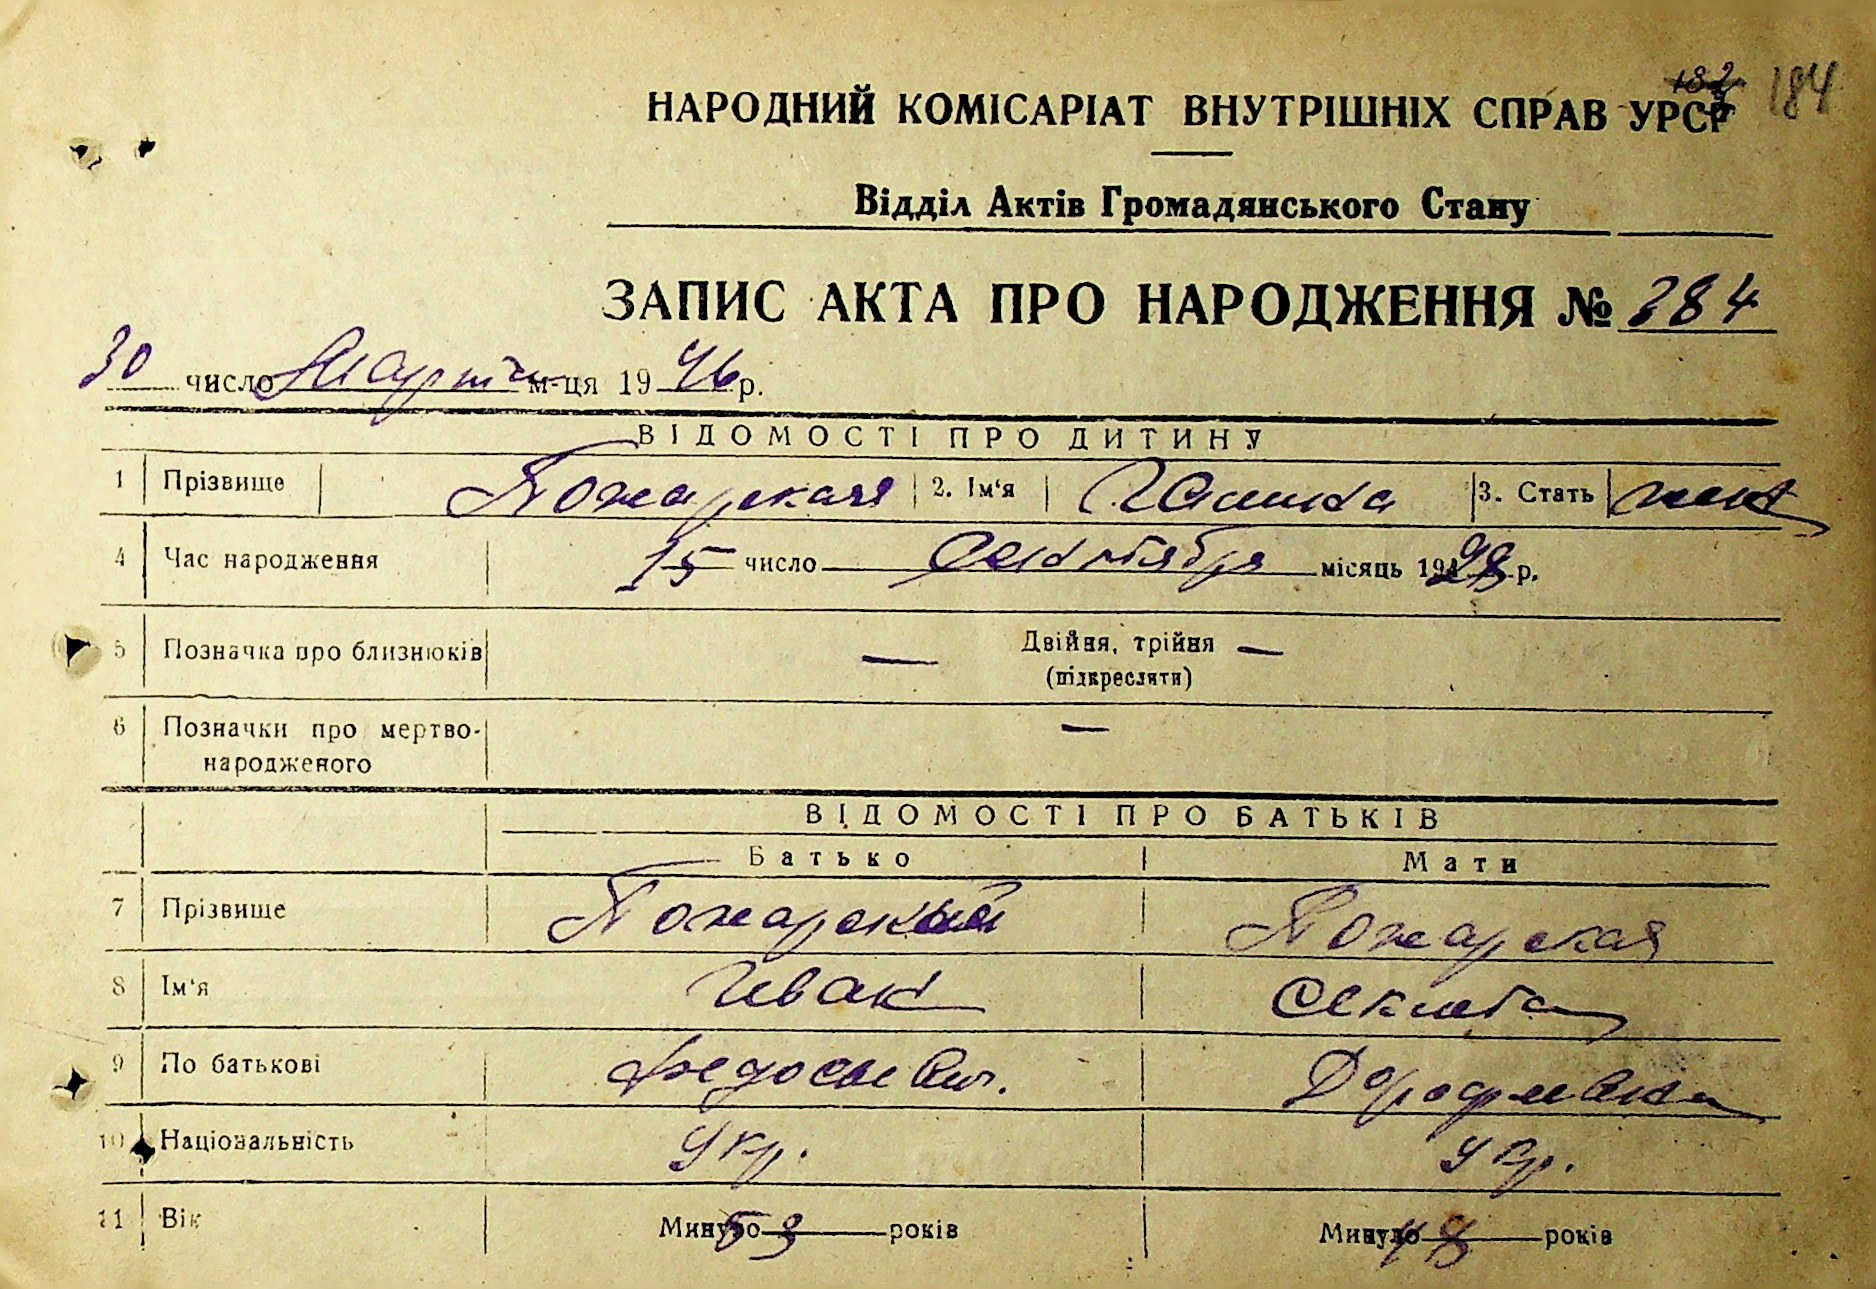 184
НАРОДНИЙ КОМІСАРІАТ ВНУТРІШНІХ СПРАВ УРСР
Відділ Актів Громадянського Стану
ЗАПИС АКТА ПРО НАРОДЖЕННЯ № 284
30 число Марта м-ця 1946 р.
ВІДОМОСТІ ПРО ДИТИНУ
1 Прізвище Пожарская 2. Ім'я Галина 3. Стать жен
4 Час народження 15 число Октября місяць р.
5 Позначка про близнюків — Двійня, трійня —
(підкреслити)
6 Позначки про мертво- —
народженого
ВІДОМОСТІ ПРО БАТЬКІВ
Батько Мати
7 Прізвище Пожарский Пожарская
8 Ім'я Иван Секлета
9 По батькові Федосеевич. Дорофеевна
10 Національність Укр. Укр.
11 Вік Минуло 53 років Минуло 48 років